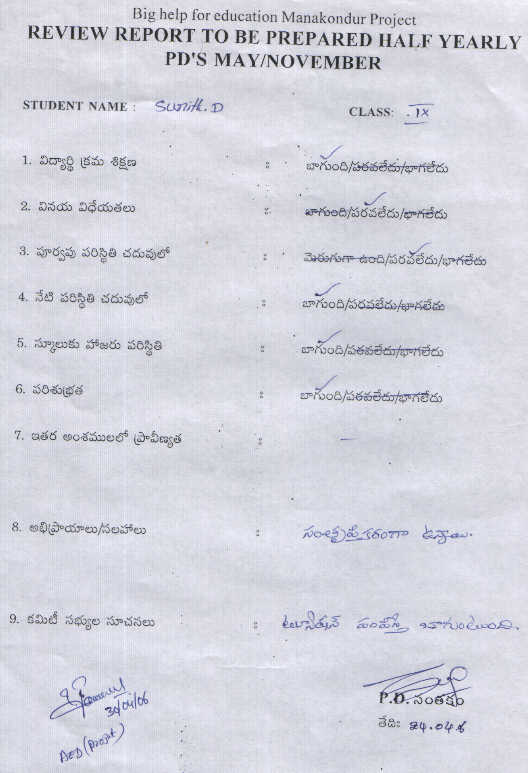 Big help for education Manakondur Project
REVIEW REPORT TO BE PREPARED HALF YEARLY
PD'S MAY/NOVEMBER
STUDENT NAME : Sunith.D CLASS: IX
1. విద్యార్థి క్రమ శిక్షణ : బాగుంది/పరవలేదు/భాగలేదు
2. వినయ విధేయతలు : బాగుంది/పరవలేదు/భాగలేదు
3. పూర్వపు పరిస్థితి చదువులో : మెరుగుగా ఉంది/పరవలేదు/భాగలేదు
4. నేటి పరిస్థితి చదువులో : బాగుంది/పరవలేదు/భాగలేదు
5. స్కూలుకు హాజరు పరిస్థితి : బాగుంది/పరవలేదు/భాగలేదు
6. పరిశుభ్రత : బాగుంది/పరవలేదు/భాగలేదు
7. ఇతర అంశములలో ప్రావీణ్యత : –
8. అభిప్రాయాలు/సలహాలు : సంతృప్తికరంగా ఉన్నాయి.
9. కమిటీ సభ్యుల సూచనలు : ట్యూషన్ పంపిస్తే బాగుంటుంది.
30/04/06
P.D. సంతకం
తేది: 24.04.6